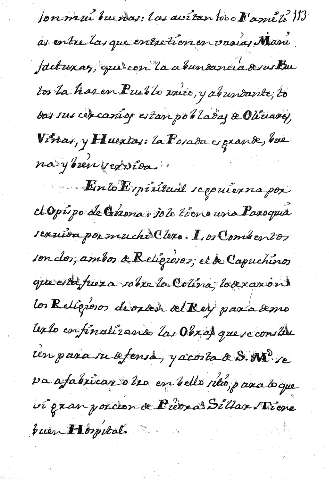 son mui buenas: las avitan 1060 Famili 113
as entre las que entretienen varias Manu
facturas, que con la abundancia de sus Fru
tos la hacen Pueblo rico, y abundante; to
dos sus cercanias estan pobladas de Olivares,
Viñas, y Huertas: la Posada es grande, bue
na y bien servida.
En lo Espiritual se govierna por
el Obispo de Gerona: solo tiene una Paroquia
servida por mucho Clero. Los Combentos
son dos, ambos de Religiosos; el de Capuchinos
que está fuera sobre la Colina, la dexaron
los Religiosos de orden del Rey para demo
lerlo en finalizando las Obras que se constru
ien para su defensa, y a costa de S. Md. se
va a fabricar otro en bello sitio, para lo que
si gran porcion de Piedra Sillar. Tiene
buen Hospital.